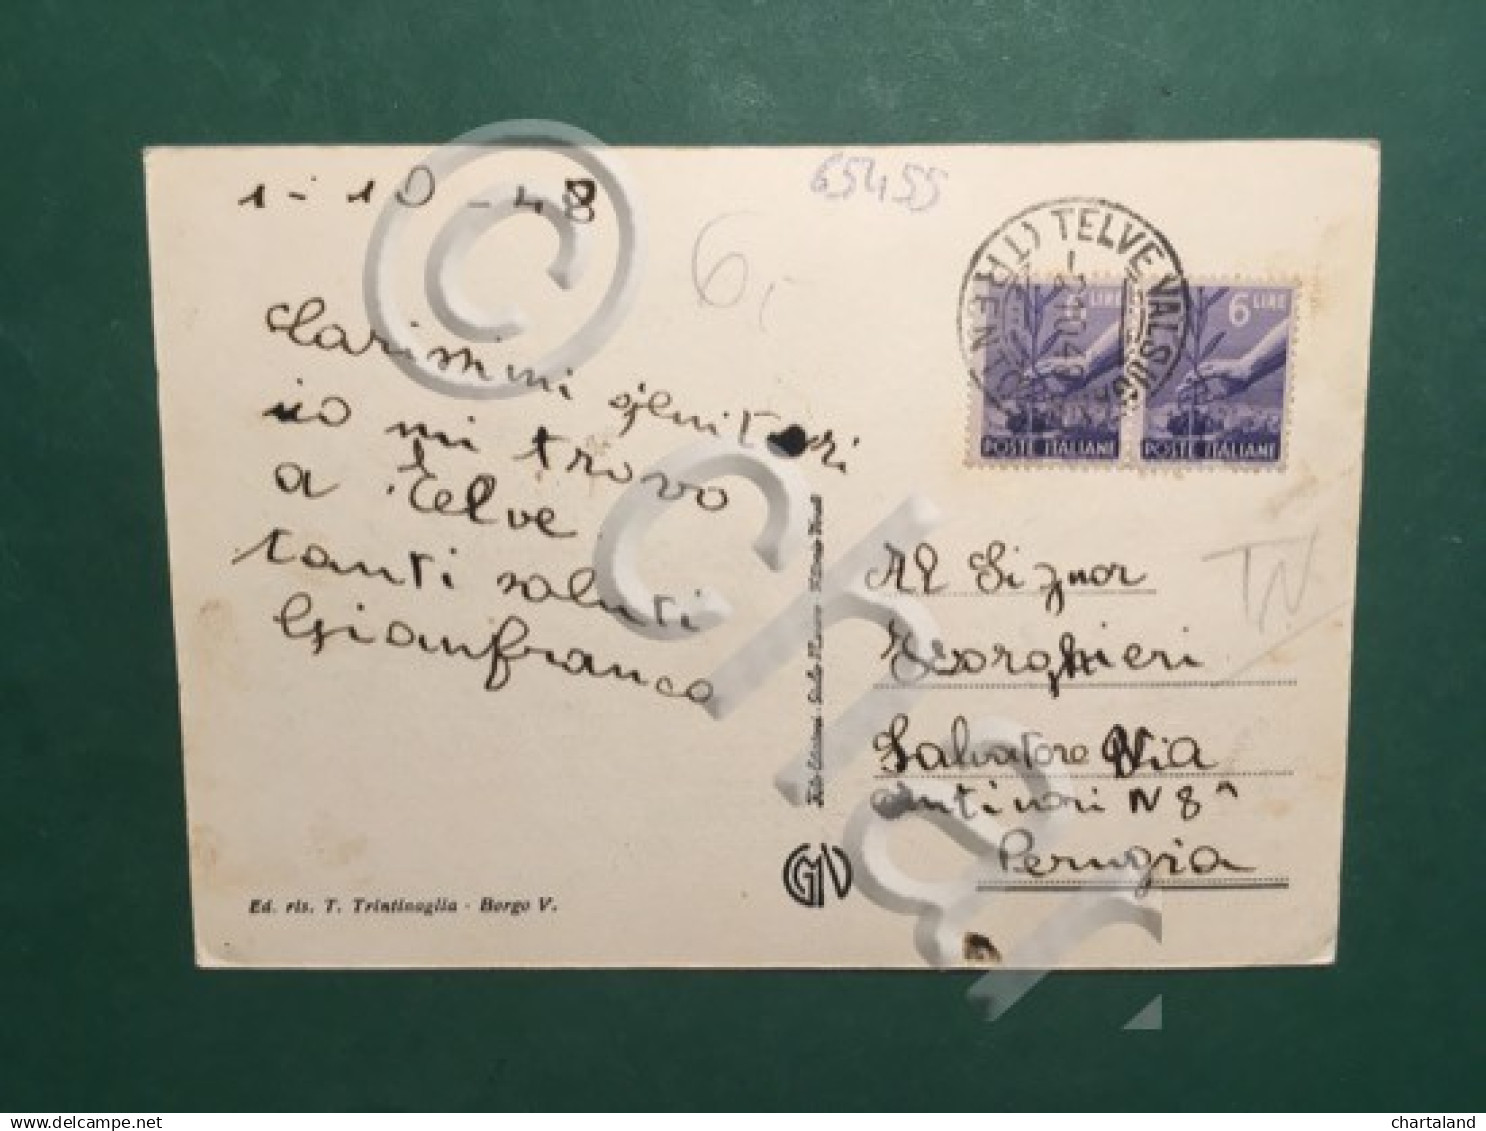 1-10-48
65455
6,-
Carissimi genitori
io mi trovo
a Telve
tanti saluti
Gianfranco
TELVE VALSUGANA (TRENTO)
1.10.48
6 LIRE
POSTE ITALIANE
6 LIRE
POSTE ITALIANE
TN
Al Signor
Salvatore Via
Antinori N 8^
Perugia
Ed. ris. T. Trintinaglia - Borgo V.
GMV
chartaland